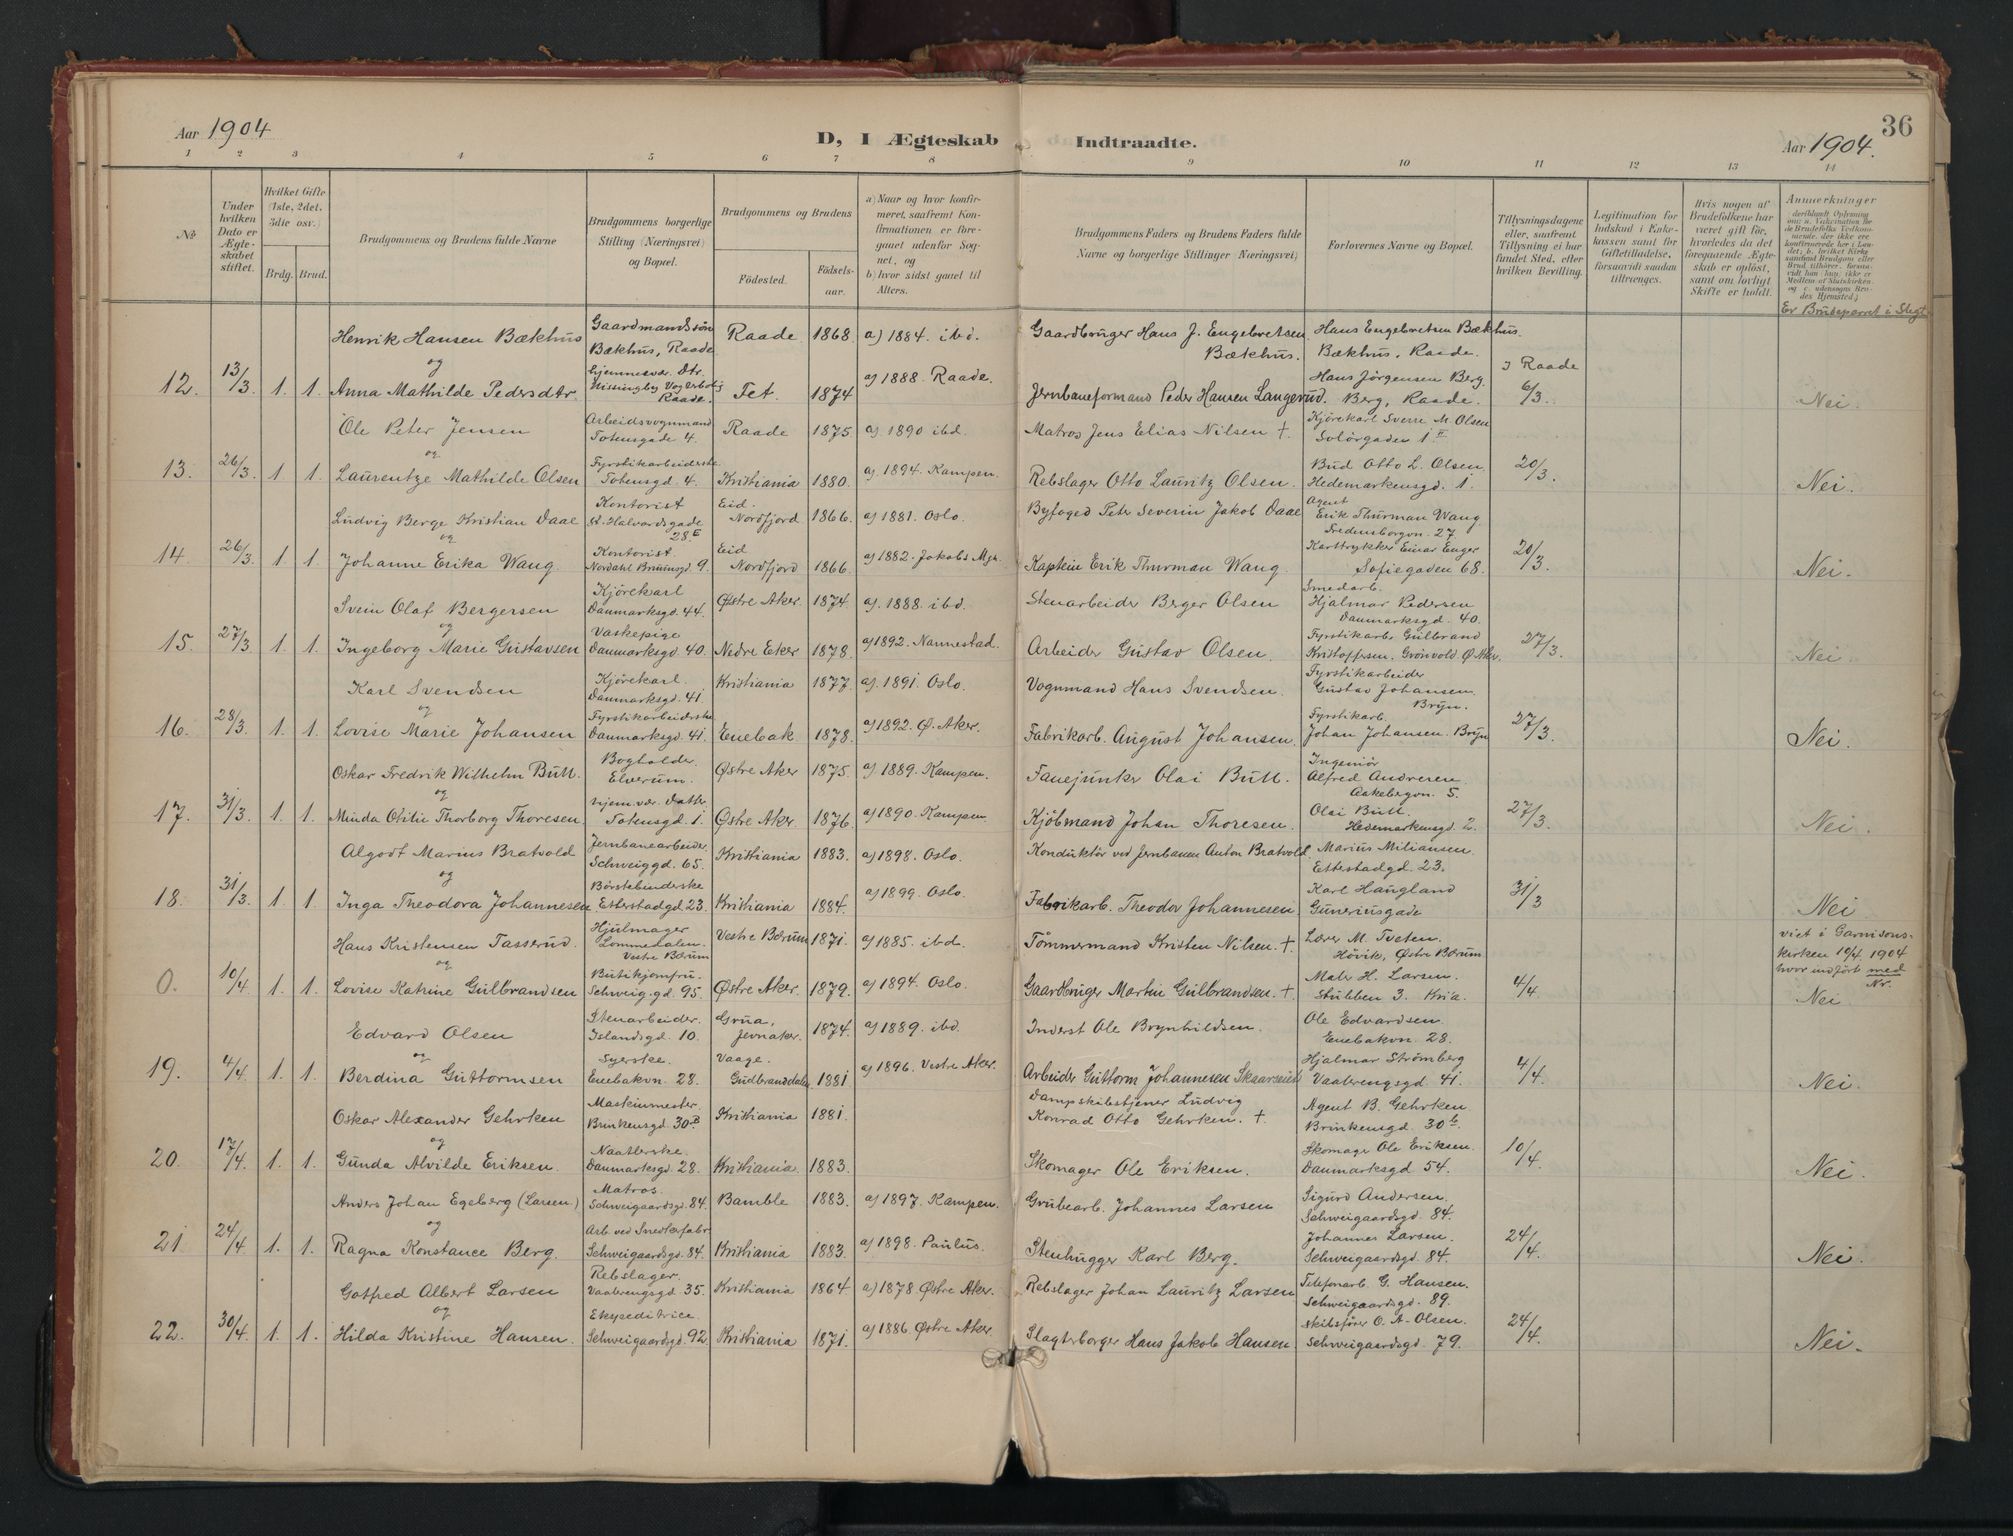 36
Aar 1904
D, I Ægteskab Indtraadte.
Aar 1904.
1 2 3 4 5 6 7 8 9 10 11 12 13 14
№
Under hvilken Dato er Ægteskabet stiftet.
Hvilket Gifte (1ste, 2det, 3die osv.
Brdg. Brud.
Brudgommens og Brudens fulde Navne
Brudgommens borgerlige Stilling (Næringsvei) og Bopæl.
Brudgommens og Brudens
Fødested.
Fødselsaar.
a) Naar og hvor konfirmeret, saafremt Konfirmationen er foregaaet udenfor Sognet, og
b) hvor sidst gaaet til Alters.
Brudgommens Faders og Brudens Faders fulde Navne og borgerlige Stillinger (Næringsvei)
Forlovernes Navne og Bopæl.
Tillysningsdagene eller, saafremt Tillysning ei har fundet Sted, efter hvilken Bevilling.
Legitimation for Indskud i Enkekassen samt for Giftetilladelse, forsaavidt saadan tiltrænges.
Hvis nogen af Brudefolkene har været gift før, hvorledes da det foregaaende Ægteskab er opløst, samt om lovligt Skifte er holdt.
Anmerkninger
Er Brudeparret i Slegt
Henrik Hansen Bækhus Gaardmandssøn Bækhus, Raade Raade 1868 a) 1884. ibd. Gaardbruger Hans J. Engebretsen Bækhus. Hans Engebretsen Bækhus. Bækhus, Raade.
og
12. 13/3 1. 1. Anna Mathilde Pedersdtr hjemmevær. Dtr. Raade. Fet. 1874 a) 1888. Raade. Jernbaneformand Peder Hansen Langerud. Hans Jörgensen Berg. Berg, Raade. I Raade 6/3. Nei.
Ole Peter Jensen Arbeidsvognmand Totensgade 4. Raade 1875. a) 1890 ibd. Matros Jens Elias Nilsen †. Kjørekarl Sverre M. Olsen Solörgaden 1 II
og
13. 26/3. 1 1. Laurentze Mathilde Olsen Fyrstikarbeiderske Totensgd. 4. Kristiania 1880. a) 1894. Kampen. Rebslager Otto Lauritz Olsen. Bud Otto L. Olsen. Hedemarkensgd. 1. 20/3. Nei.
Ludvig Berge Kristian Daae Kontorist St. Halvardsgade 28. Eid. Nordfjord 1866. a) 1881. Oslo. Byfoged Peter Severin Jakob Daae Agent Erik Thurman Wang. Fredensborgvn. 27
og
14. 26/3. 1 1. Johanne Erika Wang Kontorist. Nordahl Brunsgd. 9. Eid Nordfjord 1866. a) 1882. Jakobs Mgh. Kaptein Erik Thurman Wang. Karttrykker Einar Enger Sofiegaden 68. 20/3. Nei.
Svein Olaf Bergersen Kjörekarl Danmarksgd. 44. Østre Aker. 1874. a). 1888. ibd. Stenarbeider Berger Olsen Smedarb. Hjalmar Pedersen Danmarksgd. 40.
og
15. 27/3. 1 1. Ingeborg Marie Gustavsen Vaskepige Danmarksgd 40. Nedre Eker 1878. a) 1892. Nannestad. Arbeider Gustav Olsen. Fyrstikarb. Gulbrand Kristoffersen. Grönvold. Ø. Aker. 27/3. Nei
Karl Svendsen Kjörekarl. Danmarksgd. 41. Kristiania 1877. a). 1891. Oslo. Vognmand Hans Svendsen. Fyrstikarbeider Gustav Johansen. Bryn.
og
16. 28/3. 1. 1. Lovise Marie Johansen Fyrstikarbeiderske Danmarksgd. 41. Enebak 1878. a) 1892. Ø. Aker. Fabrikarb. August Johansen. Fyrstikarb. Johan Johansen. Bryn 27/3. Nei.
Oskar Fredrik Wilhelm Bull. Bogholder Elverum. Østre Aker 1875. a) 1889. Kampen. Fanejunker Olai Bull. Ingeniör Alfred Andresen. Aakebergvn. 5.
og
17. 31/3. 1. 1. Minda Otilie Thorborg Thoresen hjem.vær. Datter. Totensgd. 1. Østre Aker. 1876. a) 1890. Kampen. Kjöbmand Johan Thoresen. Olai Bull. Hedemarkensgd. 2. 27/3. Nei.
Algodt Marius Bratvold Jernbanearbeider. Schweiggd. 65. Kristiania 1883. a) 1898. Oslo. Konduktör ved Jernbanen Anton Bratvold. Marius Miliansen. Ettestadgd. 23.
og
18. 31/3. 1 1. Inga Theodora Johannesen Börstebinderske Etterstadgd. 23. Kristiania 1884. a) 1899. Oslo. Fabrikarb. Theodor Johannesen Karl Haugland Guneriusgade 31/3 Nei.
Hans Kristensen Tasserud. Hjulmager Lommedalen. Vestre Bærum Vestre Bærum 1871. a) 1885. ibd. Tömmermand Kristen Nilsen. † Lærer M. Tveten. Hövik, Østre Bærum viet i Garnisonskirken 10/4. 1904 hvor indfört med Nr.
og
0. 10/4. 1 1. Lovise Katrine Gulbrandsen Butikjomfru. Schweig.gd. 95. Østre Aker. 1879. a) 1894. Oslo. Gaardbruger Martin Gulbrandsen. † Maler H. Larsen. Stubben 3. Kria. 4/4. Nei
Edvard Olsen Stenarbeider. Islandsgd. 10. Grua, Jevnaker. 1874. a) 1889. ibd. Inderst Ole Brynhildsen. Ole Edvardsen. Enebakvn. 28.
og
19. 4/4. 1. 1. Berdina Guttormsen Syerske. Enebakvn. 28. Vaage. Gudbrandsdalen 1881. a) 1896. Vestre Aker. Arbeider Guttorm Johannesen Skaarseth Hjalmar Strömberg Vaalerengsgd. 41. 4/4. Nei.
Oskar Alexander Gehrken Maskinmester. Brinkensgd. 30 B Kristiania 1881. Dampskibstjener Ludvig Konrad Otto Gehrken. † Agent B. Gehrken. Brinkensgd. 30 b.
og
20. 17/4. 1. 1. Gunda Alvilde Eriksen. Naatlerske. Danmarksgd. 28. Kristiania. 1883. Skomager Ole Eriksen. Skomager Ole Eriksen. Danmarksgd 54. 10/4. Nei.
Anders Johan Egeberg (Larsen) Matros. Schweigaardsgd. 84. Bamble 1883. a) 1897. Kampen. Grubearb. Johannes Larsen Sigurd Andersen. Schweigaardsgd. 84.
og
21 24/4. 1. 1. Ragna Konstance Berg. Schweigaardsgd. 84. Kristiania 1883. a) 1898. Paulus. Stenhugger Karl Berg. Johannes Larsen. Schweigaardsgd. 84. 24/4. Nei.
Gotfred Albert Larsen Rebslager. Vaalerengsgd. 35. Kristiania 1864 a) 1878 Østre Aker. Rebslager Johan Lauritz Larsen Telefonarb. G. Hansen. Schweigaardsgd. 89.
og
22. 30/4. 1. 1. Hilda Kristine Hansen. Ekspeditrice. Schweigaardsgd. 92 Kristiania 1871. a) 1886 Østre Aker. Slagterborger Hans Jakob Hansen Skibsförer O. A. Olsen. Schweigaardsgd. 79. 24/4. Nei.